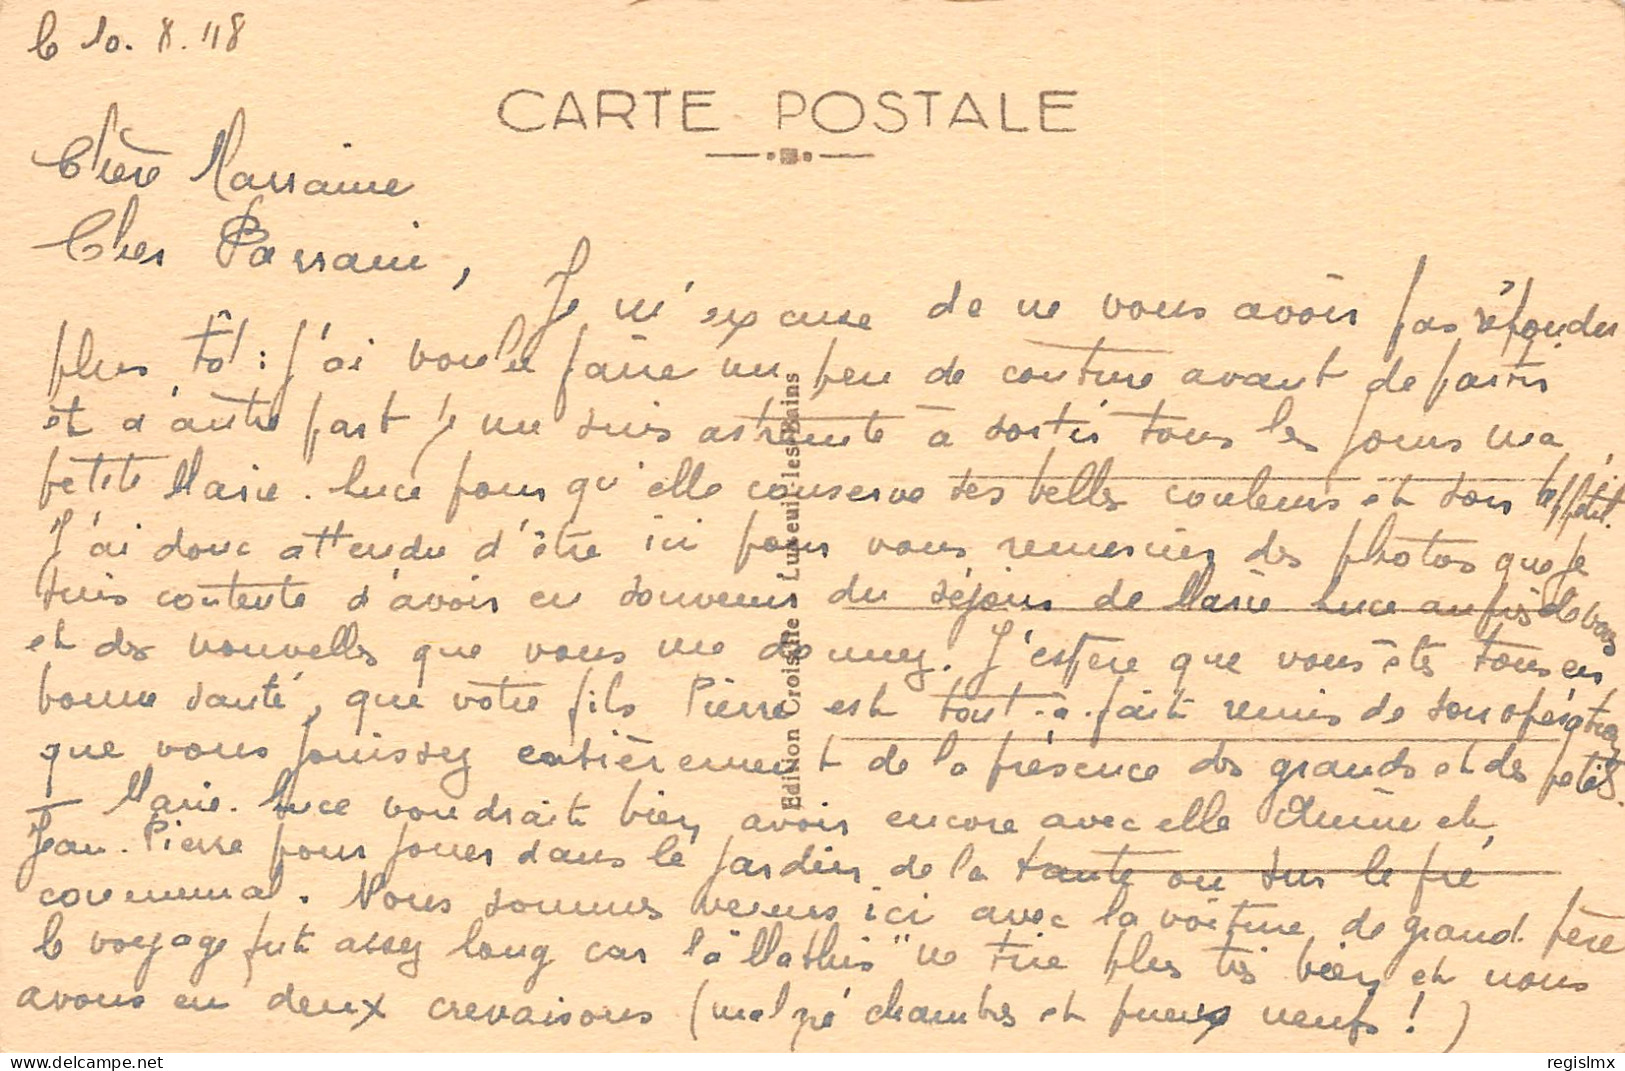 le 10. 8. 48
CARTE POSTALE
Chère Marraine
Cher Parrain,
Je m'excuse de ne vous avoir pas répondu
plus tôt : j'ai voulu faire un peu de couture avant de partir
et d'autre part je me suis astreinte à sortir tous les jours ma
petite Marie-Luce pour qu'elle conserve ses belles couleurs et son appétit.
J'ai donc attendu d'être ici pour vous remercier des photos que je
suis contente d'avoir en souvenir du séjour de Marie Luce auprès de vous
et des nouvelles que vous me donnez. J'espère que vous êtes tous en
bonne santé, que votre fils Pierre est tout-à-fait remis de son opération,
que vous jouissez entièrement de la présence des grands et des petits.
Marie-Luce voudrait bien avoir encore avec elle et
Jean-Pierre pour jouer dans le jardin de la tante ou sur le pré
communal. Nous sommes venus ici avec la voiture de grand-père
le voyage fut assez long car la "Mathis" ne tire plus très bien et nous
avons eu deux crevaisons (malgré chambres et pneux neufs !)
Edition Croiselle Luxeuil-les-Bains
delcampe.net
regislmx